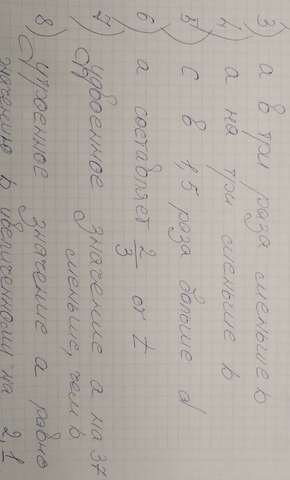 3) а в три раза меньше b
4) а на три меньше b
5) с в 1,5 раза больше d
6) а составляет 2/3 от t
7) удвоенное значение а на 37
меньше, чем b
8) утроенное значение а равно
значению b увеличенному на 2,1